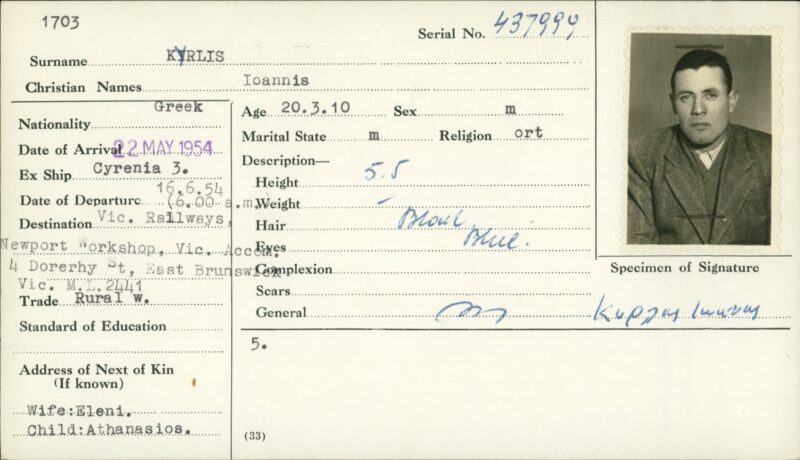 1703
Serial No. 437999
Surname KYRLIS
Christian Names Ioannis
Nationality Greek
Date of Arrival 22 MAY 1954
Ex Ship Cyrenia 3.
Date of Departure 16.6.54 (6.00 a.m.)
Destination Vic. Railways,
Newport Workshop, Vic. Accom.
4 Dorerhy St, East Brunswick
Vic. M.L.2441
Trade Rural w.
Standard of Education
Address of Next of Kin
(If known)
Wife:Eleni.
Child:Athanasios.
Age 20.3.10 Sex m
Marital State m Religion ort
Description—
Height 5.5
Weight -
Hair
Eyes Blue.
Complexion
Scars
General
5.
(33)
Specimen of Signature